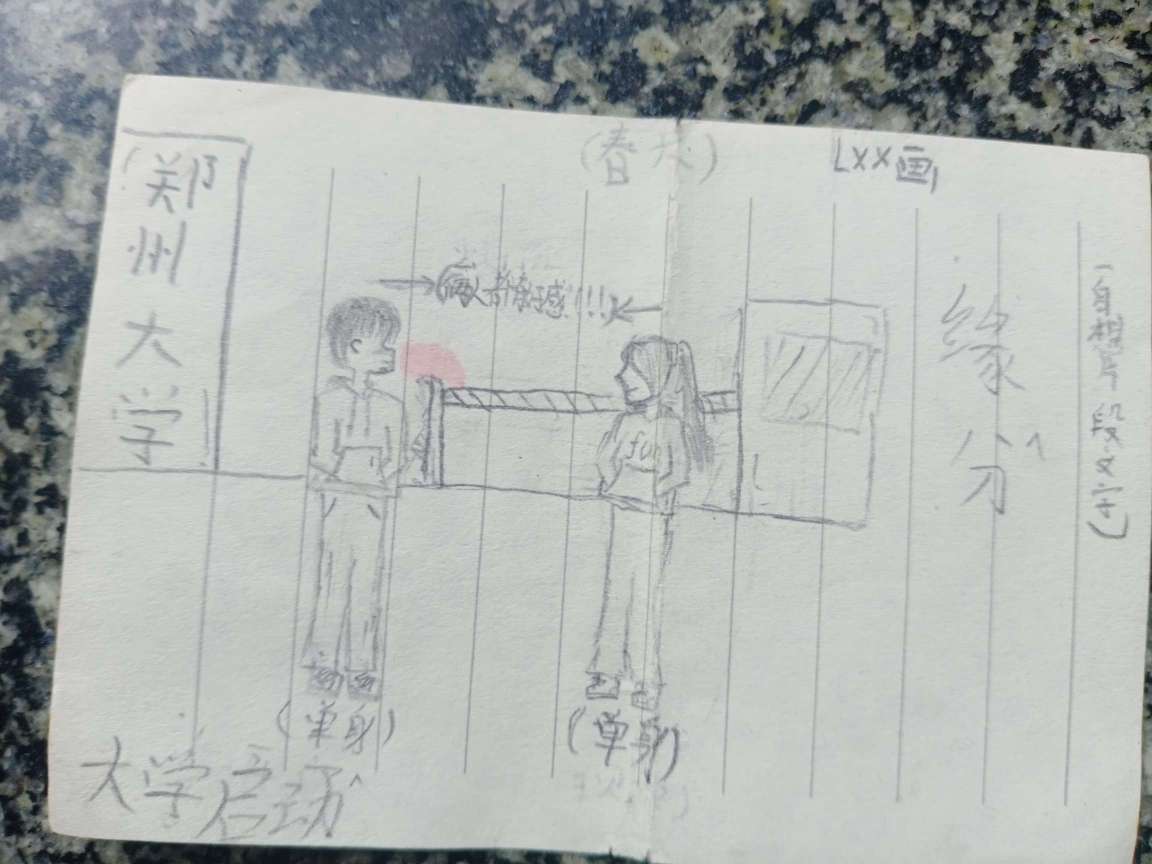 (春天)
LXX画
郑州大学
(俩人都有好感!!!)
缘分
(自想写段文字)
(单身)
(单身)
大学启动